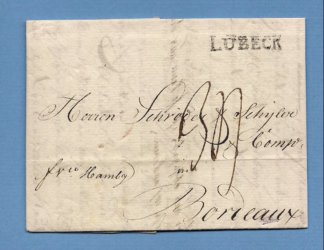 LUBECK
Herren Schröder & Schÿler
& Comp.
frco Hamby
Bordeaux